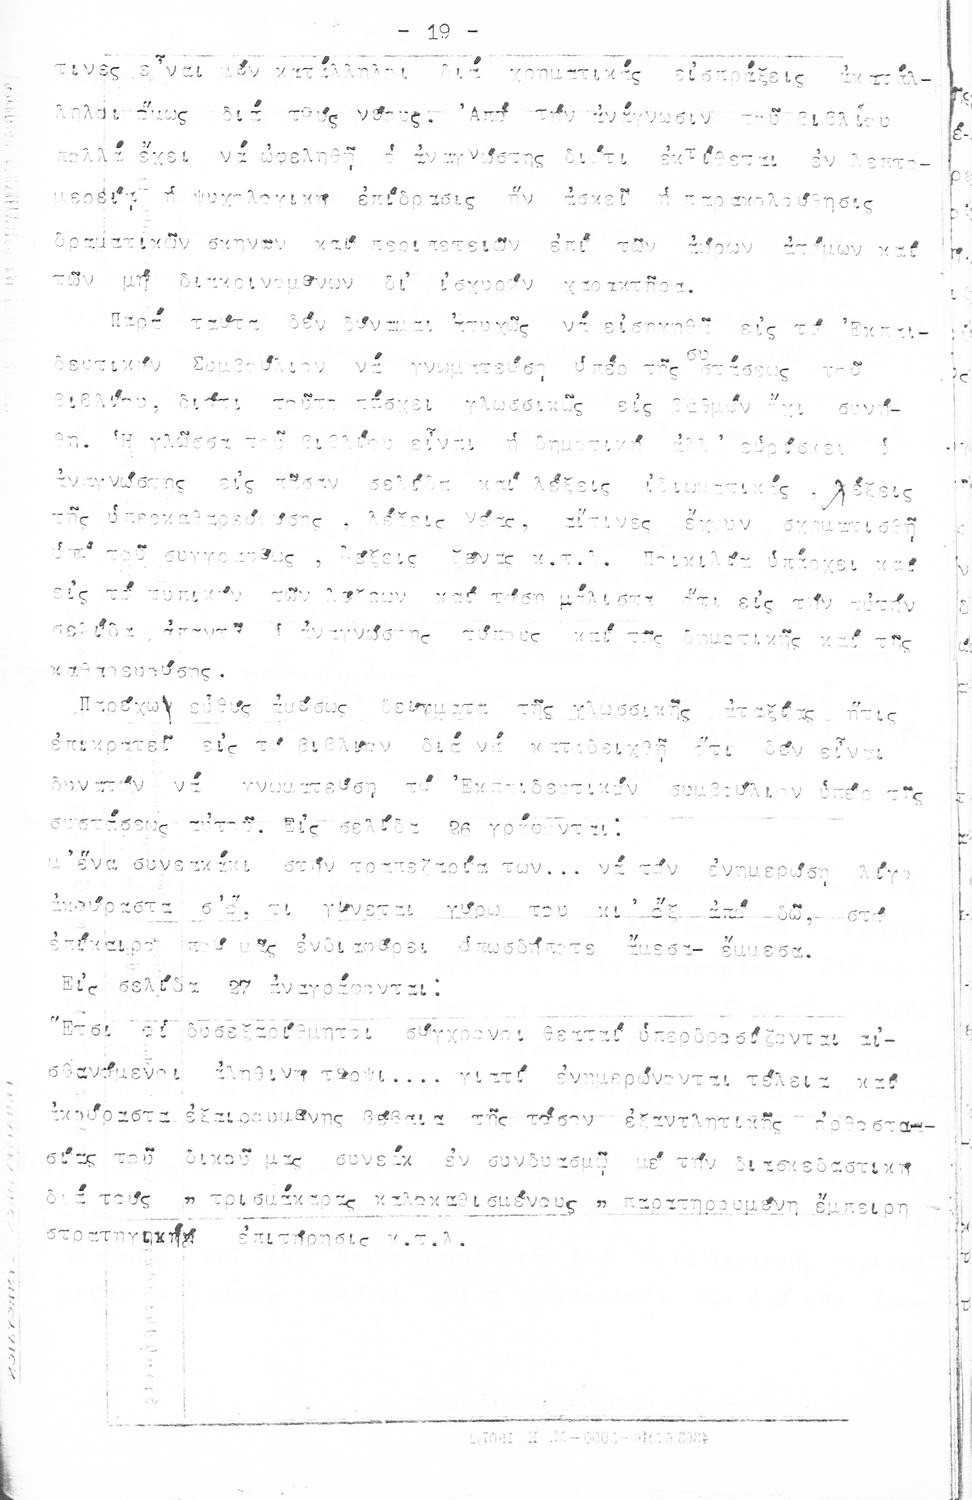 - 19 -
τινες εἶναι μέν κατάλληλοι διά χρηματικάς εἰσπράξεις ἀκατάλ-
ληλοι ὅμως διά τούς νέους. Ἀπό τήν ἀνάγνωσιν τοῦ βιβλίου
πολλά ἔχει νά ὠφεληθῇ ὁ ἀναγνώστης διότι ἐκτίθεται ἐν λεπτο-
μερείᾳ ἡ ψυχολογική ἐπίδρασις ἥν ἀσκεῖ ἡ παρακολούθησις
δραματικῶν σκηνῶν καί περιπετειῶν ἐπί τῶν ἀώρων ἀτόμων καί
τῶν μή διακρινομένων δι' ἰσχυρόν χαρακτῆρα.
Παρά ταῦτα δέν δύναμαι ἀτυχῶς νά εἰσηγηθῶ εἰς τό Ἐκπαι-
δευτικόν Συμβούλιον νά γνωματεύσῃ ὑπέρ τῆς συστάσεως τοῦ
βιβλίου, διότι τοῦτο πάσχει γλωσσικῶς εἰς βαθμόν ὄχι συνή-
θη. Ἡ γλῶσσα τοῦ βιβλίου εἶναι ἡ δημοτική ἀλλ' εὑρίσκει ὁ
ἀναγνώστης εἰς πᾶσαν σελίδα καί λέξεις ἰδιωματικάς, λέξεις
τῆς ὑπερκαθαρευούσης, λέξεις νέας, αἵτινες ἔχουν σχηματισθῆ
ὑπό τοῦ συγγραφέως, λέξεις ξένας κ.τ.λ. Ποικιλία ὑπάρχει καί
εἰς τό τυπικόν τῶν λέξεων καί τόση μάλιστα ὅτι εἰς τήν αὐτήν
σελίδα ἀπαντᾷ ὁ ἀναγνώστης τύπους καί τῆς δημοτικῆς καί τῆς
καθαρευούσης.
Παρέχων εὐθύς ἀμέσως δείγματα τῆς γλωσσικῆς ἀταξίας ἥτις
ἐπικρατεῖ εἰς τό βιβλίον διά νά καταδειχθῇ ὅτι δέν εἶναι
δυνατόν νά γνωματεύσῃ τό Ἐκπαιδευτικόν συμβούλιον ὑπέρ τῆς
συστάσεως αὐτοῦ. Εἰς σελίδα 26 γράφονται:
μ'ἕνα συνεακάκι στήν τραπεζαρία των... νά τόν ἐνημερώσῃ λίγο
ἀκούραστα σ'ὅ, τι γίνεται γύρω του κι' ἔξ ἀπό δῶ, στά
ἐπίκαιρα πού μᾶς ἐνδιαφέρει ὁπωσδήποτε ἄμεσα- ἔμμεσα.
Εἰς σελίδα 27 ἀναγράφονται:
"Ετσι οἱ δυσεξαρίθμητοι σύγχρονοι θεαταί ὑπερδροσίζονται αἰ-
σθανόμενοι ἀληθινή τέρψι.... γιατί ἐνημερώνονται τέλεια καί
ἀκούραστα ἐξαιρουμένης βέβαια τῆς τόσον ἐξαντλητικῆς ὀρθοστα-
σίας τοῦ δικοῦ μας συνεάκ ἐν συνδυασμῷ μέ τήν διασκεδαστική
διά τούς " τρισμάκαρας καλοκαθισμένους " παρατηρουμένη ἔμπειρη
στρατηγική ἐπιτήρησις κ.τ.λ.